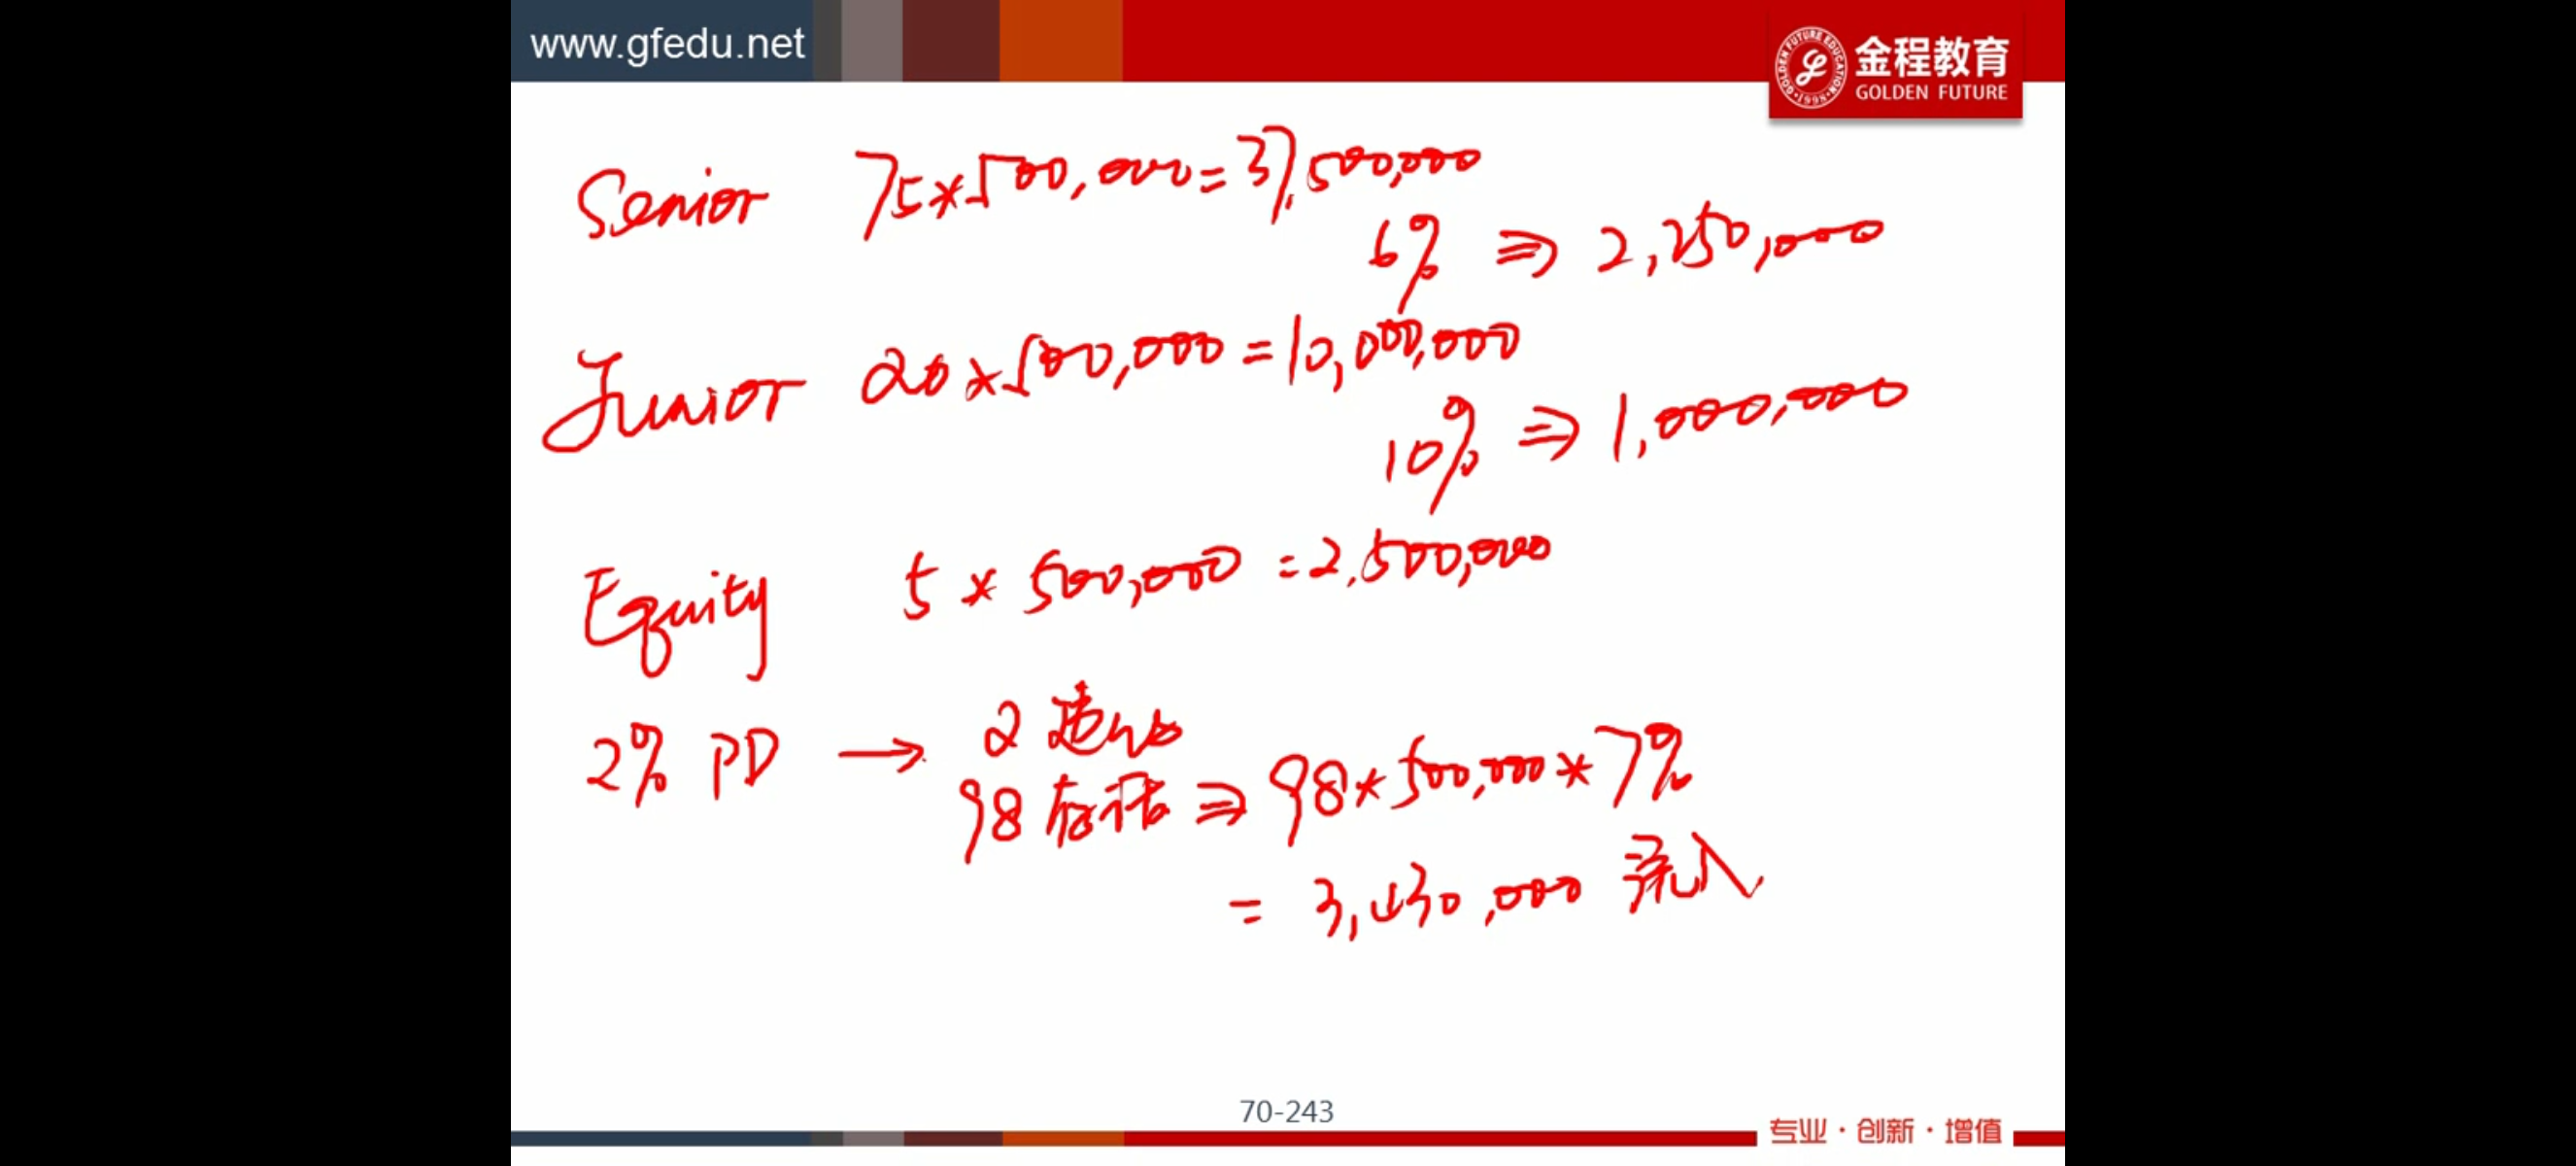 www.gfedu.net
金程教育
GOLDEN FUTURE EDUCATION
·1998·
GOLDEN FUTURE
Senior 75*500,000=37,500,000
6% ⇒ 2,250,000
Junior 20*500,000=10,000,000
10% ⇒ 1,000,000
Equity 5*500,000=2,500,000
2% PD → 2违约
98存活 ⇒ 98*500,000*7%
= 3,430,000 流入
70-243
专业·创新·增值